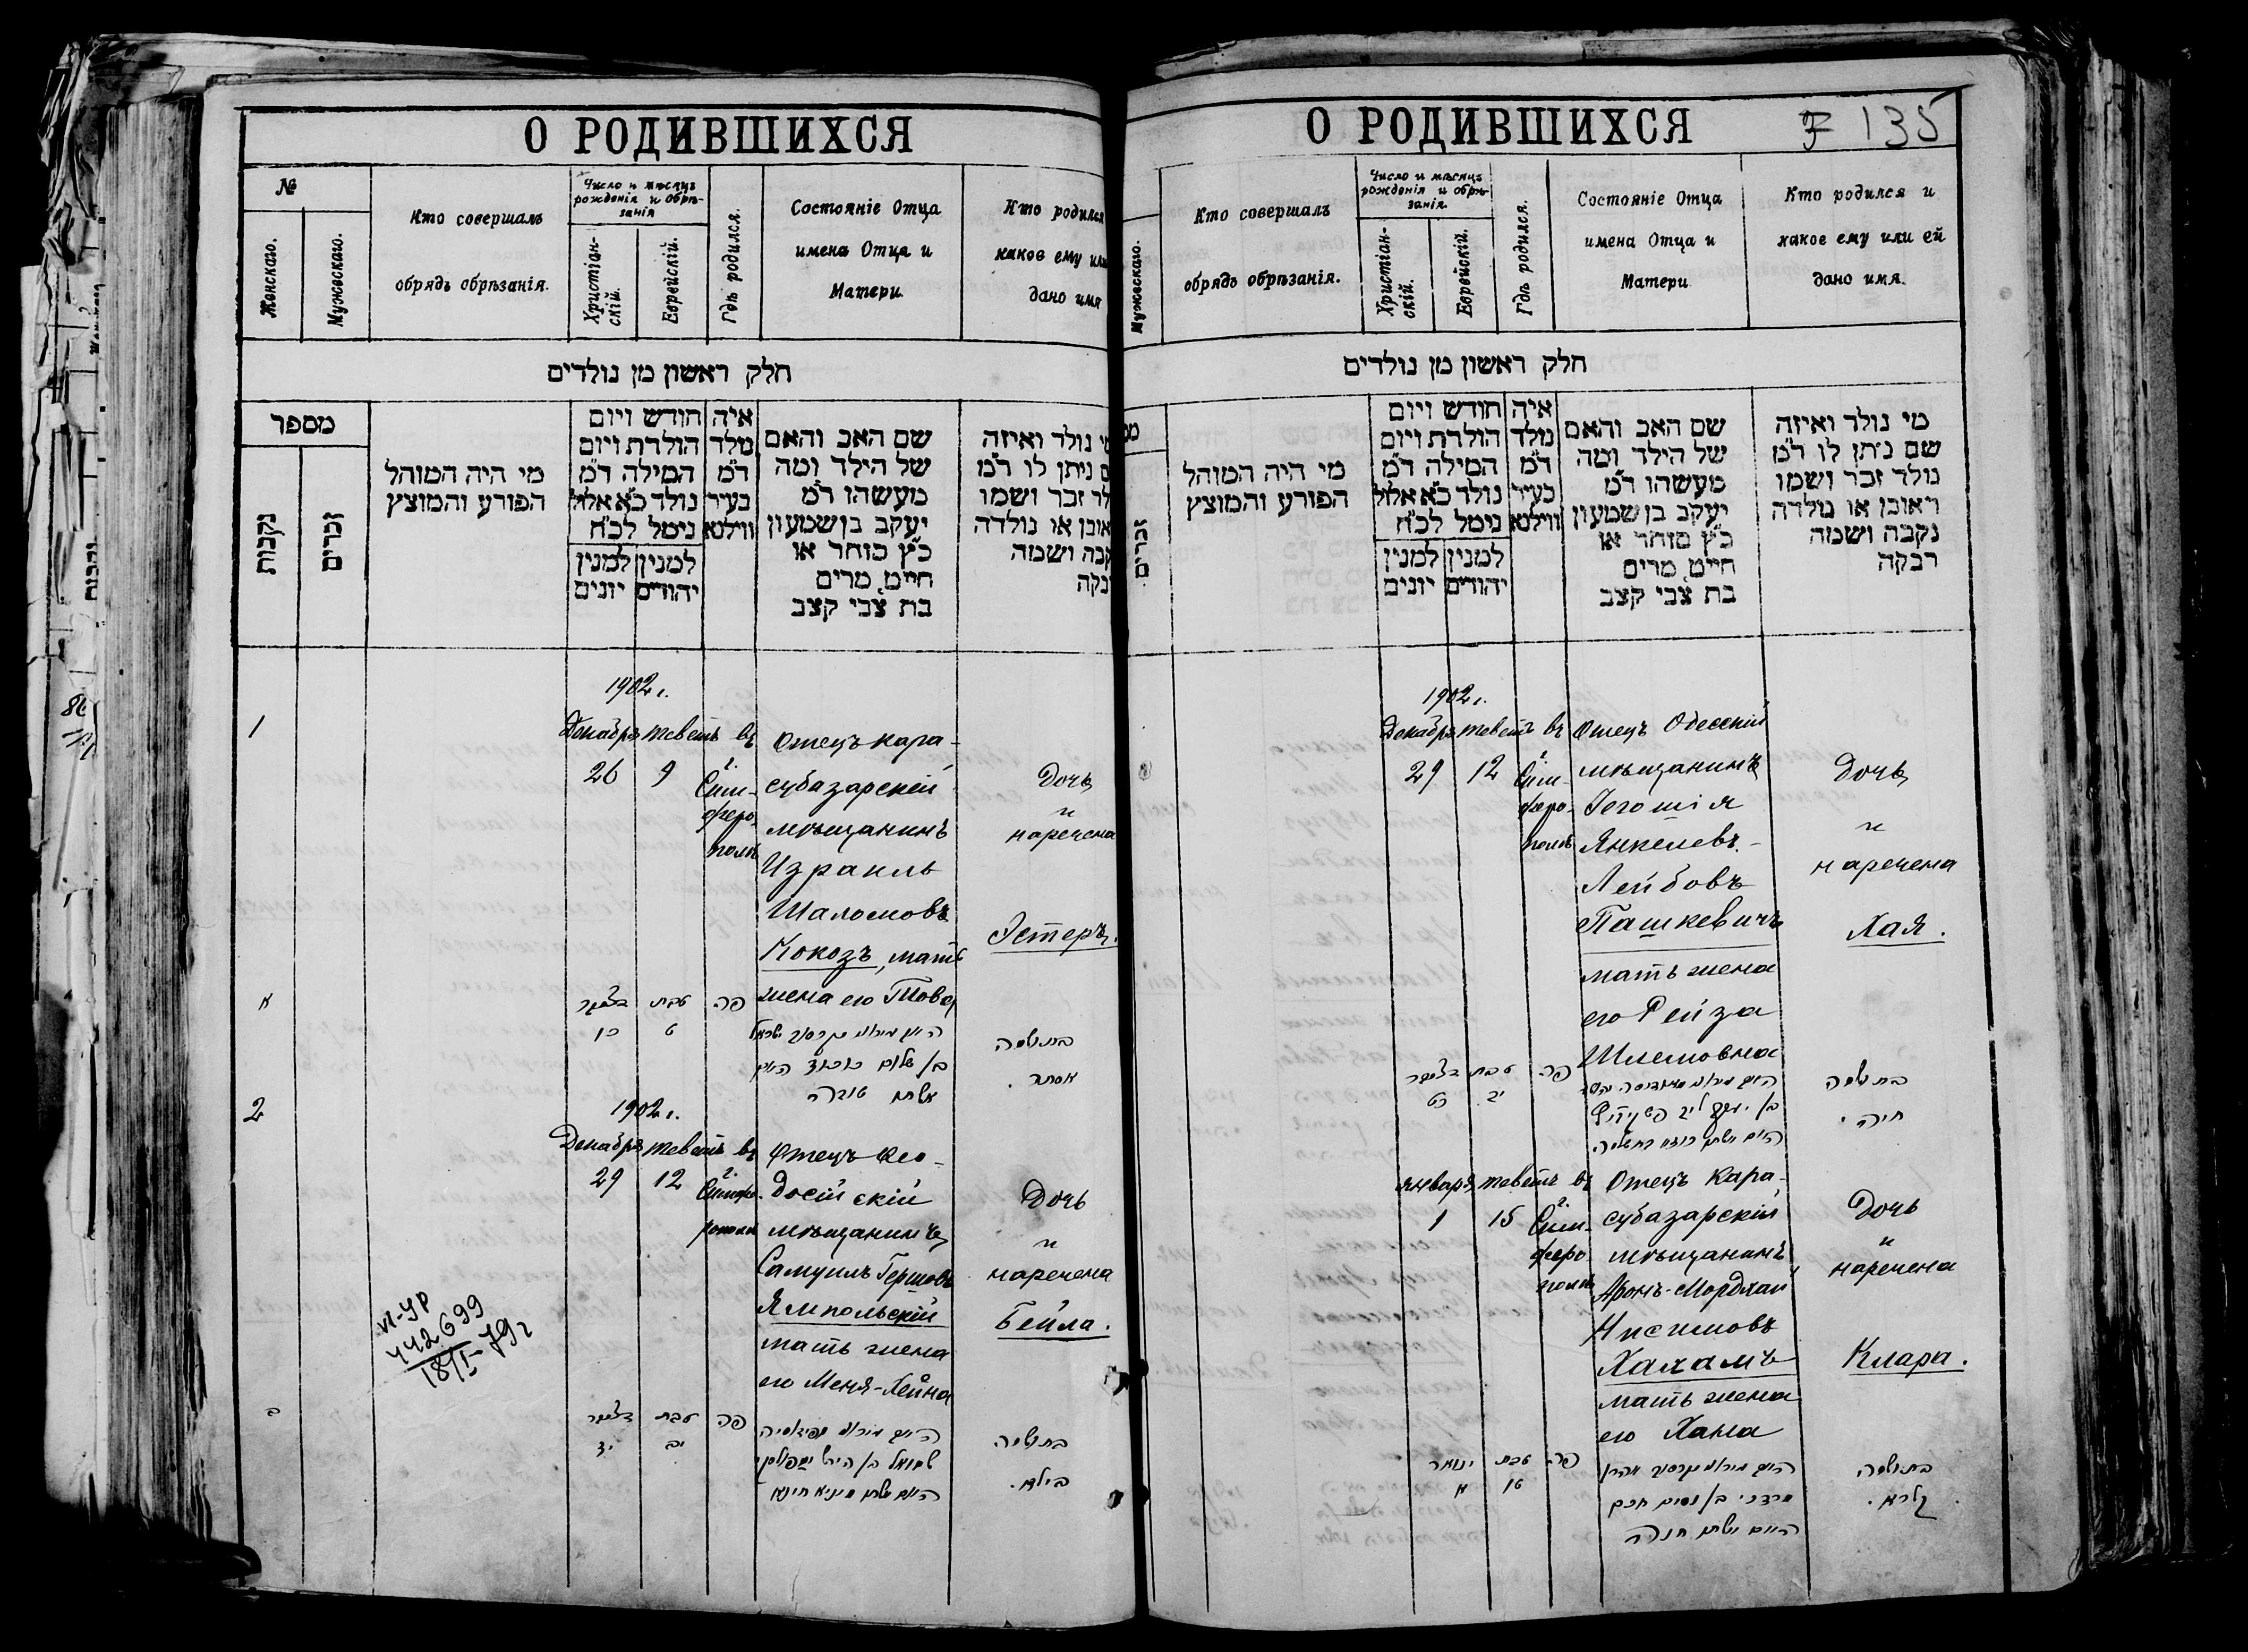 О РОДИВШИХСЯ
№
Женскаго.
Мужескаго.
Кто совершалъ
обрядъ обрѣзанія.
Число и мѣсяцъ
рожденія и обрѣ-
занія
Христіан-
скій.
Еврейскій.
Гдѣ родился.
Состояніе Отца
имена Отца и
Матери
Кто родился
какое ему или
дано имя
חלק ראשון מן נולדים
מספר
נקבות
זכרים
מי היה המוהל
הפורע והמוצץ
חודש ויום
הולדת ויום
המילה ד״מ
נולד כ״א אלול
נימל לכ״ח
למנין למנין
יהודים יונים
איה
נולד
ד״מ
בעיר
ווילנא
שם האב והאם
של הילד ומה
מעשהו ד״מ
יעקב בן שמעון
כ״ץ סוחר או
חייט, מרים
בת צבי קצב
נולד ואיזה
ניתן לו ד״מ
זכר ושמו
או נולדה
ושמה
1
1902 г.
Декабрь теветъ въ
26 9 г.
Сим-
феро-
полѣ
Отецъ кара-
субазарскій
мѣщанинъ
Израиль
Шаломовъ
Кокозъ, мать
жена его Това
Дочь
и
наречена
Эстеръ.
א
טבת פה
ט כו
בן שלום
אשתו טובה
אסתר.
2
1902 г.
Декабрь теветъ въ
29 12 г.
Симфе-
рополѣ
Отецъ Ѳео-
досійскій
мѣщанинъ
Самуилъ Гершовъ
Ямпольскій
мать жена
его Меня-Хейна
Дочь
и
наречена
Бейла.
VI-УР
442699
18/I-79г
ב
טבת פה
יב
שמואל בן הירש
בילא.
О РОДИВШИХСЯ
135
Мужескаго.
Кто совершалъ
обрядъ обрѣзанія.
Число и мѣсяцъ
рожденія и обрѣ-
занія.
Христіан-
скій.
Еврейскій.
Гдѣ родился.
Состояніе Отца
имена Отца и
Матери
Кто родился и
какое ему или ей
дано имя.
חלק ראשון מן נולדים
זכרים
מי היה המוהל
הפורע והמוצץ
חודש ויום
הולדת ויום
המילה ד״מ
נולד כ״א אלול
נימל לכ״ח
למנין למנין
יהודים יונים
איה
נולד
ד״מ
בעיר
ווילנא
שם האב והאם
של הילד ומה
מעשהו ד״מ
יעקב בן שמעון
כ״ץ סוחר או
חייט, מרים
בת צבי קצב
מי נולד ואיזה
שם ניתן לו ד״מ
נולד זכר ושמו
ראובן או נולדה
נקבה ושמה
רבקה
1902 г.
Декабрь теветъ въ
29 12 г.
Сим-
феро-
полѣ
Отецъ Одесскій
мѣщанинъ
Іегошія
Янкелевъ-
Лейбовъ
Пашкевичъ
мать жена
его Рейза
Шлемовна
Дочь
и
наречена
Хая.
טבת פה
יב כט
חיה.
январь теветъ въ
1 15 г.
Сим-
феро
полѣ
Отецъ Кара-
субазарскій
мѣщанинъ
Аронъ-Мордхай
Нисимовъ
Хахамъ
мать жена
его Хана
Дочь
и
наречена
Клара.
ינואר טבת פה
א טו
מרדכי בן נסים חכם
חנה
קלרא.